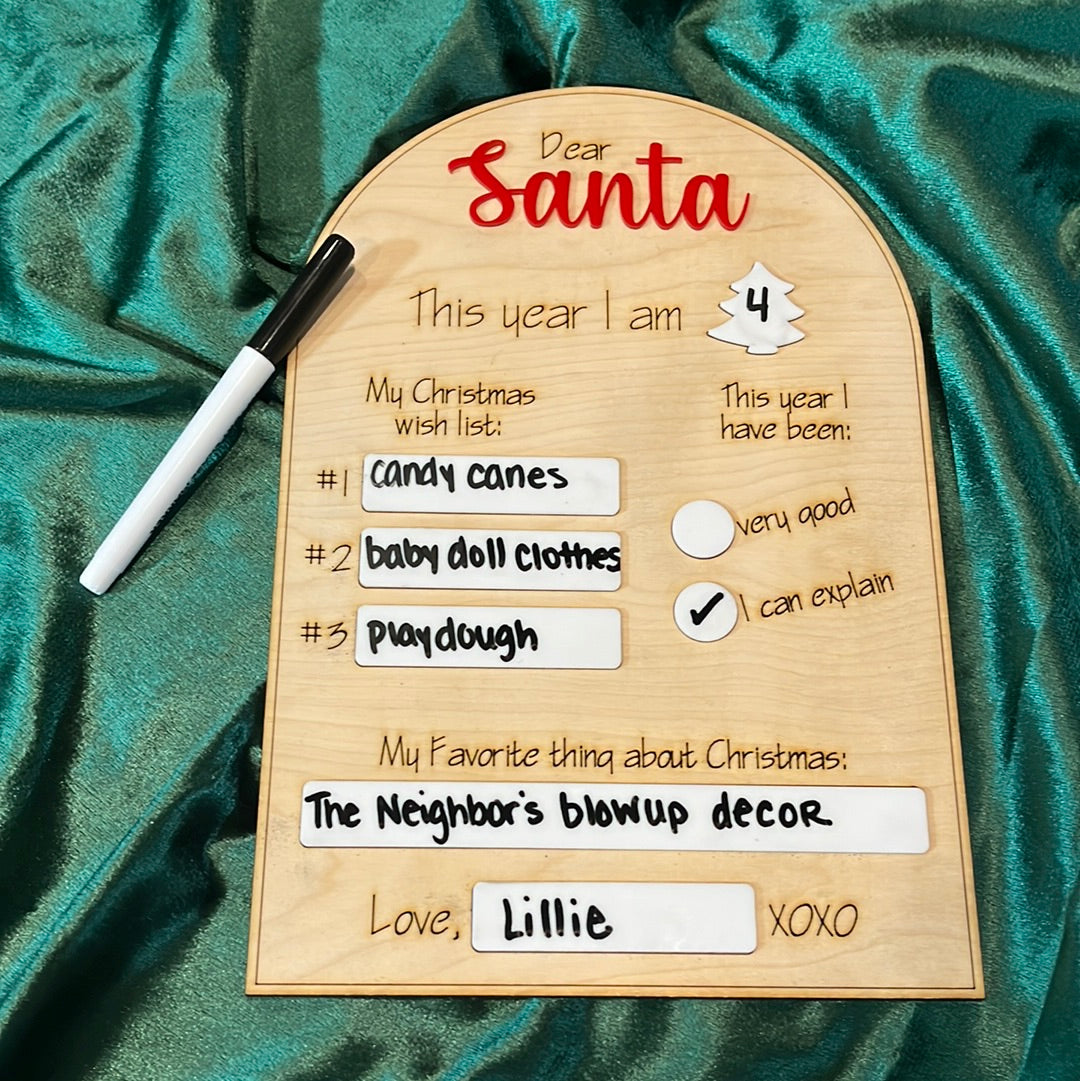 Dear
Santa
This year I am 4
My Christmas
wish list:
#1 candy canes
#2 baby doll clothes
#3 playdough
This year I
have been:
very good
✓ I can explain
My Favorite thing about Christmas:
The Neighbor's blowup decor
Love, Lillie XOXO